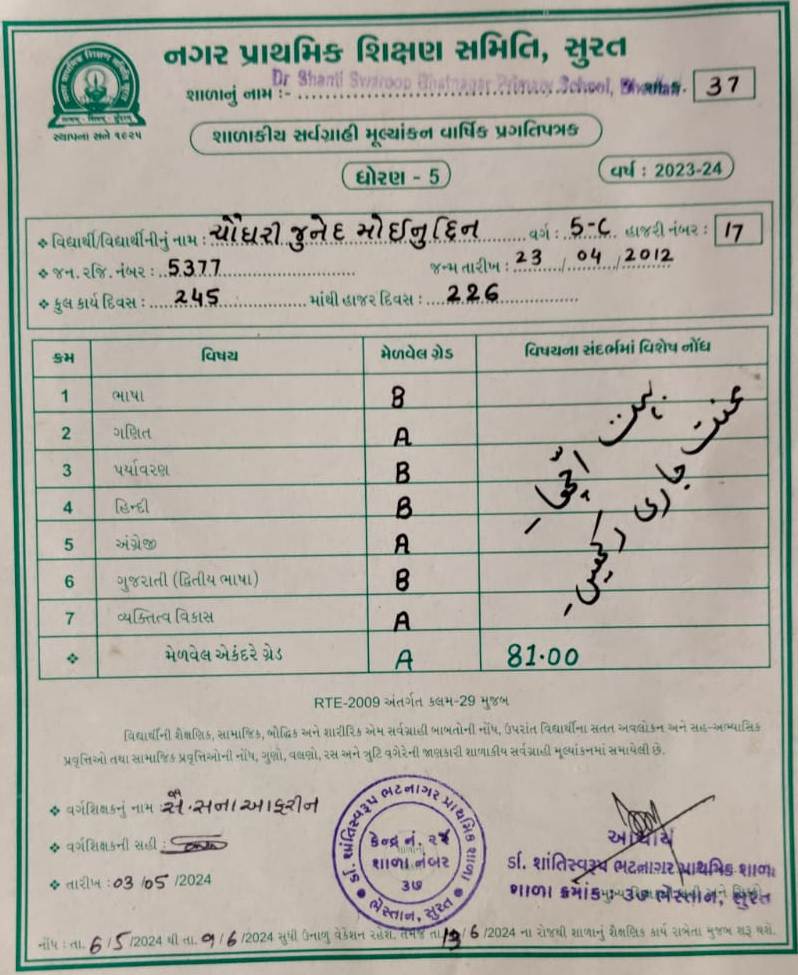 નગર પ્રાથમિક શિક્ષણ સમિતિ, સુરત
સ્થાપના સને ૧૯૨૫
શાળાનું નામ :- Dr Shanti Swaroop Bhatnagar Primary School, 37
શાળાકીય સર્વગ્રાહી મૂલ્યાંકન વાર્ષિક પ્રગતિપત્રક
ધોરણ - 5
વર્ષ : 2023-24
❖ વિદ્યાર્થી/વિદ્યાર્થીનીનું નામ : ચૌધરી જુનેદ મોઈનુદ્દિન વર્ગ : 5-C હાજરી નંબર : 17
❖ જન. રજિ. નંબર : 5377 જન્મ તારીખ : 23 / 04 / 2012
❖ કુલ કાર્ય દિવસ : 245 માંથી હાજર દિવસ : 226
ક્રમ વિષય મેળવેલ ગ્રેડ વિષયના સંદર્ભમાં વિશેષ નોંધ
1 ભાષા B
2 ગણિત A
3 પર્યાવરણ B
4 હિન્દી B
5 અંગ્રેજી A
6 ગુજરાતી (દ્વિતીય ભાષા) B
7 વ્યક્તિત્વ વિકાસ A
بہت اچھا -
محنت جاری رکھیں -
❖ મેળવેલ એકંદરે ગ્રેડ A 81.00
RTE-2009 અંતર્ગત કલમ-29 મુજબ
વિદ્યાર્થીની શૈક્ષણિક, સામાજિક, બૌદ્ધિક અને શારીરિક એમ સર્વગ્રાહી બાબતોની નોંધ, ઉપરાંત વિદ્યાર્થીના સતત અવલોકન અને સહ-અભ્યાસિક
પ્રવૃત્તિઓ તથા સામાજિક પ્રવૃત્તિઓની નોંધ, ગુણો, વલણો, રસ અને ત્રુટિ વગેરેની જાણકારી શાળાકીય સર્વગ્રાહી મૂલ્યાંકનમાં સમાયેલી છે.
❖ વર્ગશિક્ષકનું નામ : સૈ. સના આફરીન
❖ વર્ગશિક્ષકની સહી :
❖ તારીખ : 03 / 05 /2024
ડૉ. શાંતિસ્વરૂપ ભટનાગર પ્રાથમિક શાળા
કેન્દ્ર નં.
શાળા નંબર
૩૭
ભેસ્તાન, સુરત
આચાર્ય
ડૉ. શાંતિસ્વરૂપ ભટનાગર પ્રાથમિક શાળા
શાળા ક્રમાંક : ૩૭ ભેસ્તાન, સુરત
નોંધ : તા. 6/5/2024 થી તા. 9/6/2024 સુધી ઉનાળુ વેકેશન રહેશે. તેમજ તા. /6/2024 ના રોજથી શાળાનું શૈક્ષણિક કાર્ય રાબેતા મુજબ શરૂ થશે.